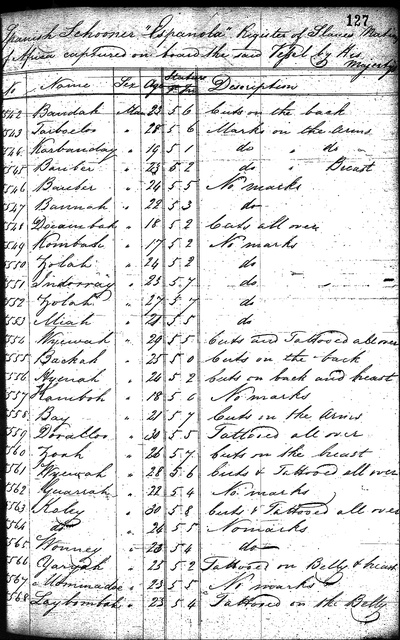 127
Spanish Schooner "Espanola" Register of Slaves Natives
of Africa captured on board the said Vessel by His
Majesty's
No Name Sex Age Stature Description
F. In
542 Bandah Man 23 5 6 Cuts on the back
543 28 5 6 Marks on the Arms
544 Karbanday " 19 5 1 do " do
5545 Banber " 23 5 2 do " Breast
546 " 24 5 5 No marks
547 Bannah " 22 5 3 do
548 " 18 5 2 Cuts all over
549 Kombah " 17 5 2 No marks
5550 Zolah " 24 5 2 do
5551 " 23 5 7 do
5552 Zolah " 27 5 7 do
5553 Miah " 21 5 5 do
5554 Wyewah " 29 5 5 Cuts and Tattooed all over
555 Backah " 25 5 0 Cuts on the back
5556 Nyerrah " 24 5 2 Cuts on back and breast
5557 Kamboh " 18 5 6 No marks
5558 Bay " 21 5 7 Cuts on the Arms
5559 " 30 5 5 Tattooed all over
2560 Zoah " 26 5 7 Cuts on the breast
5561 Wyewah " 28 5 6 Cuts & Tattooed all over
562 Guarrah " 22 5 4 No marks
5563 Kaley " 30 5 8 Cuts & Tattooed all over
5564 do " 24 5 5 No marks
5565 Wonney " 23 5 4 do
5566 " 25 5 2 Tattooed on Belly & breast
5567 " 23 5 5 No marks
568 Laybombah " 23 5 4 Tattooed on the Belly